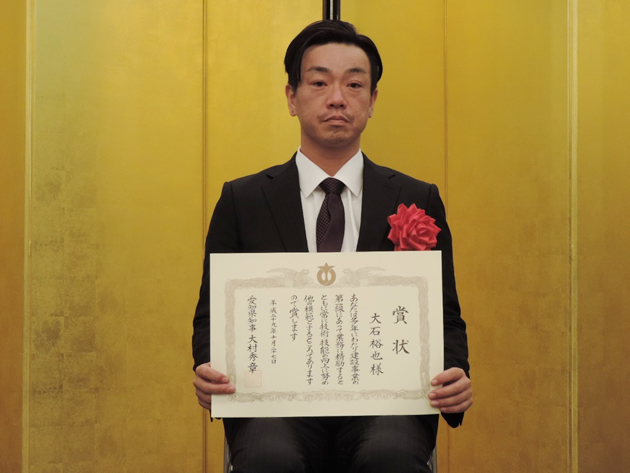 賞状
大石裕也様
あなたは多年にわたり建設事業の
第一線にあって業務に精励すると
ともに常に技術技能の向上に努め
他の模範とするところであります
よって賞します
平成二十九年十月二十七日
愛知県知事 大村秀章